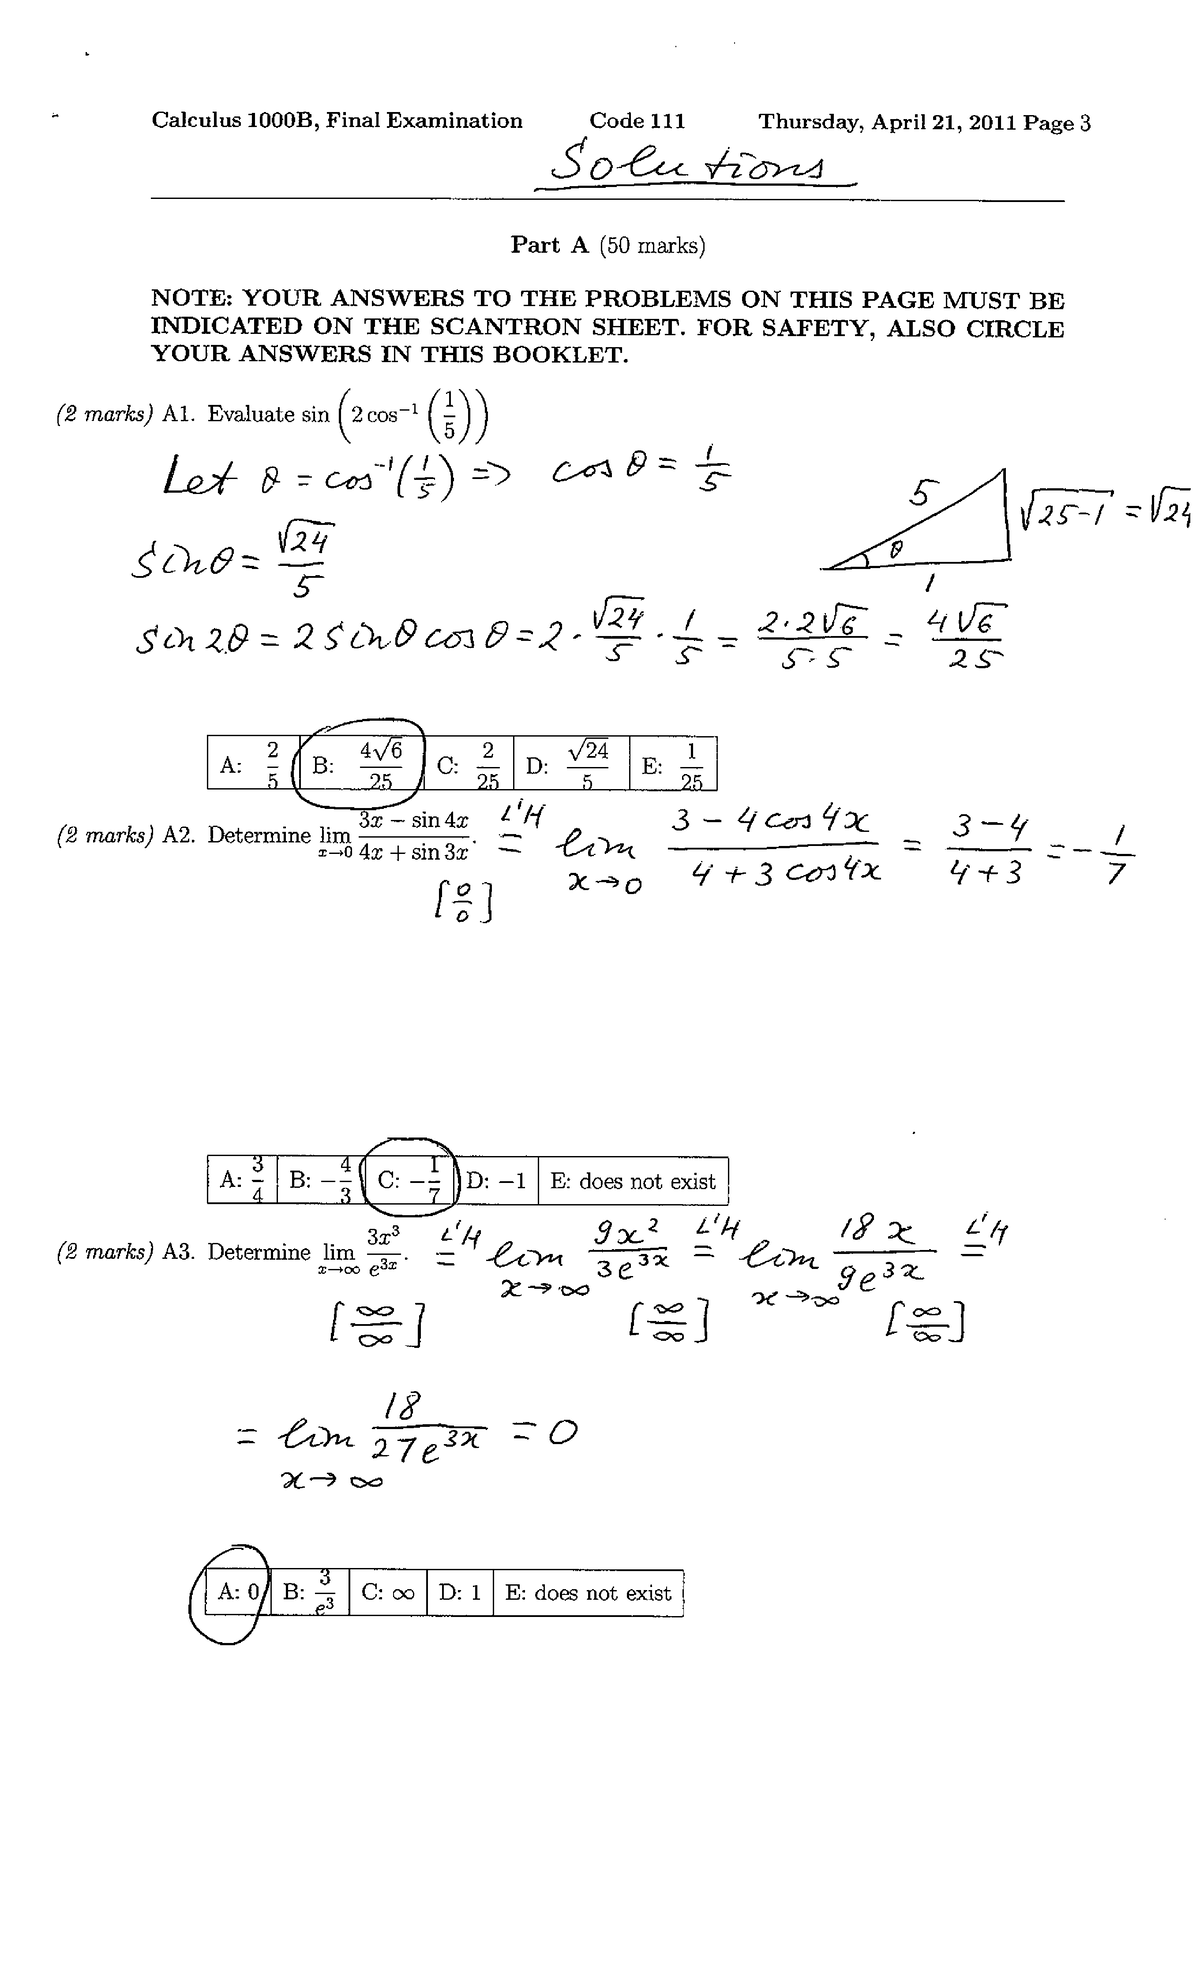 Calculus 1000B, Final Examination Code 111 Thursday, April 21, 2011 Page 3
Solutions
Part A (50 marks)
NOTE: YOUR ANSWERS TO THE PROBLEMS ON THIS PAGE MUST BE
INDICATED ON THE SCANTRON SHEET. FOR SAFETY, ALSO CIRCLE
YOUR ANSWERS IN THIS BOOKLET.
(2 marks) A1. Evaluate sin (2 cos⁻¹ (1/5))
Let θ = cos⁻¹(1/5) => cos θ = 1/5
5 √25-1 = √24
θ
1
sinθ = √24/5
sin 2θ = 2 sinθ cosθ = 2 · √24/5 · 1/5 = 2·2√6/5·5 = 4√6/25
A: 2/5 B: 4√6/25 C: 2/25 D: √24/5 E: 1/25
(2 marks) A2. Determine lim x→0 (3x − sin 4x)/(4x + sin 3x). L'H = lim x→0 (3 - 4cos4x)/(4 + 3cos4x) = (3-4)/(4+3) = -1/7
[0/0]
A: 3/4 B: −4/3 C: −1/7 D: −1 E: does not exist
(2 marks) A3. Determine lim x→∞ 3x³/e³ˣ. L'H = lim x→∞ 9x²/3e³ˣ L'H = lim x→∞ 18x/9e³ˣ L'H =
[∞/∞] [∞/∞] [∞/∞]
= lim x→∞ 18/27e³ˣ = 0
A: 0 B: 3/e³ C: ∞ D: 1 E: does not exist